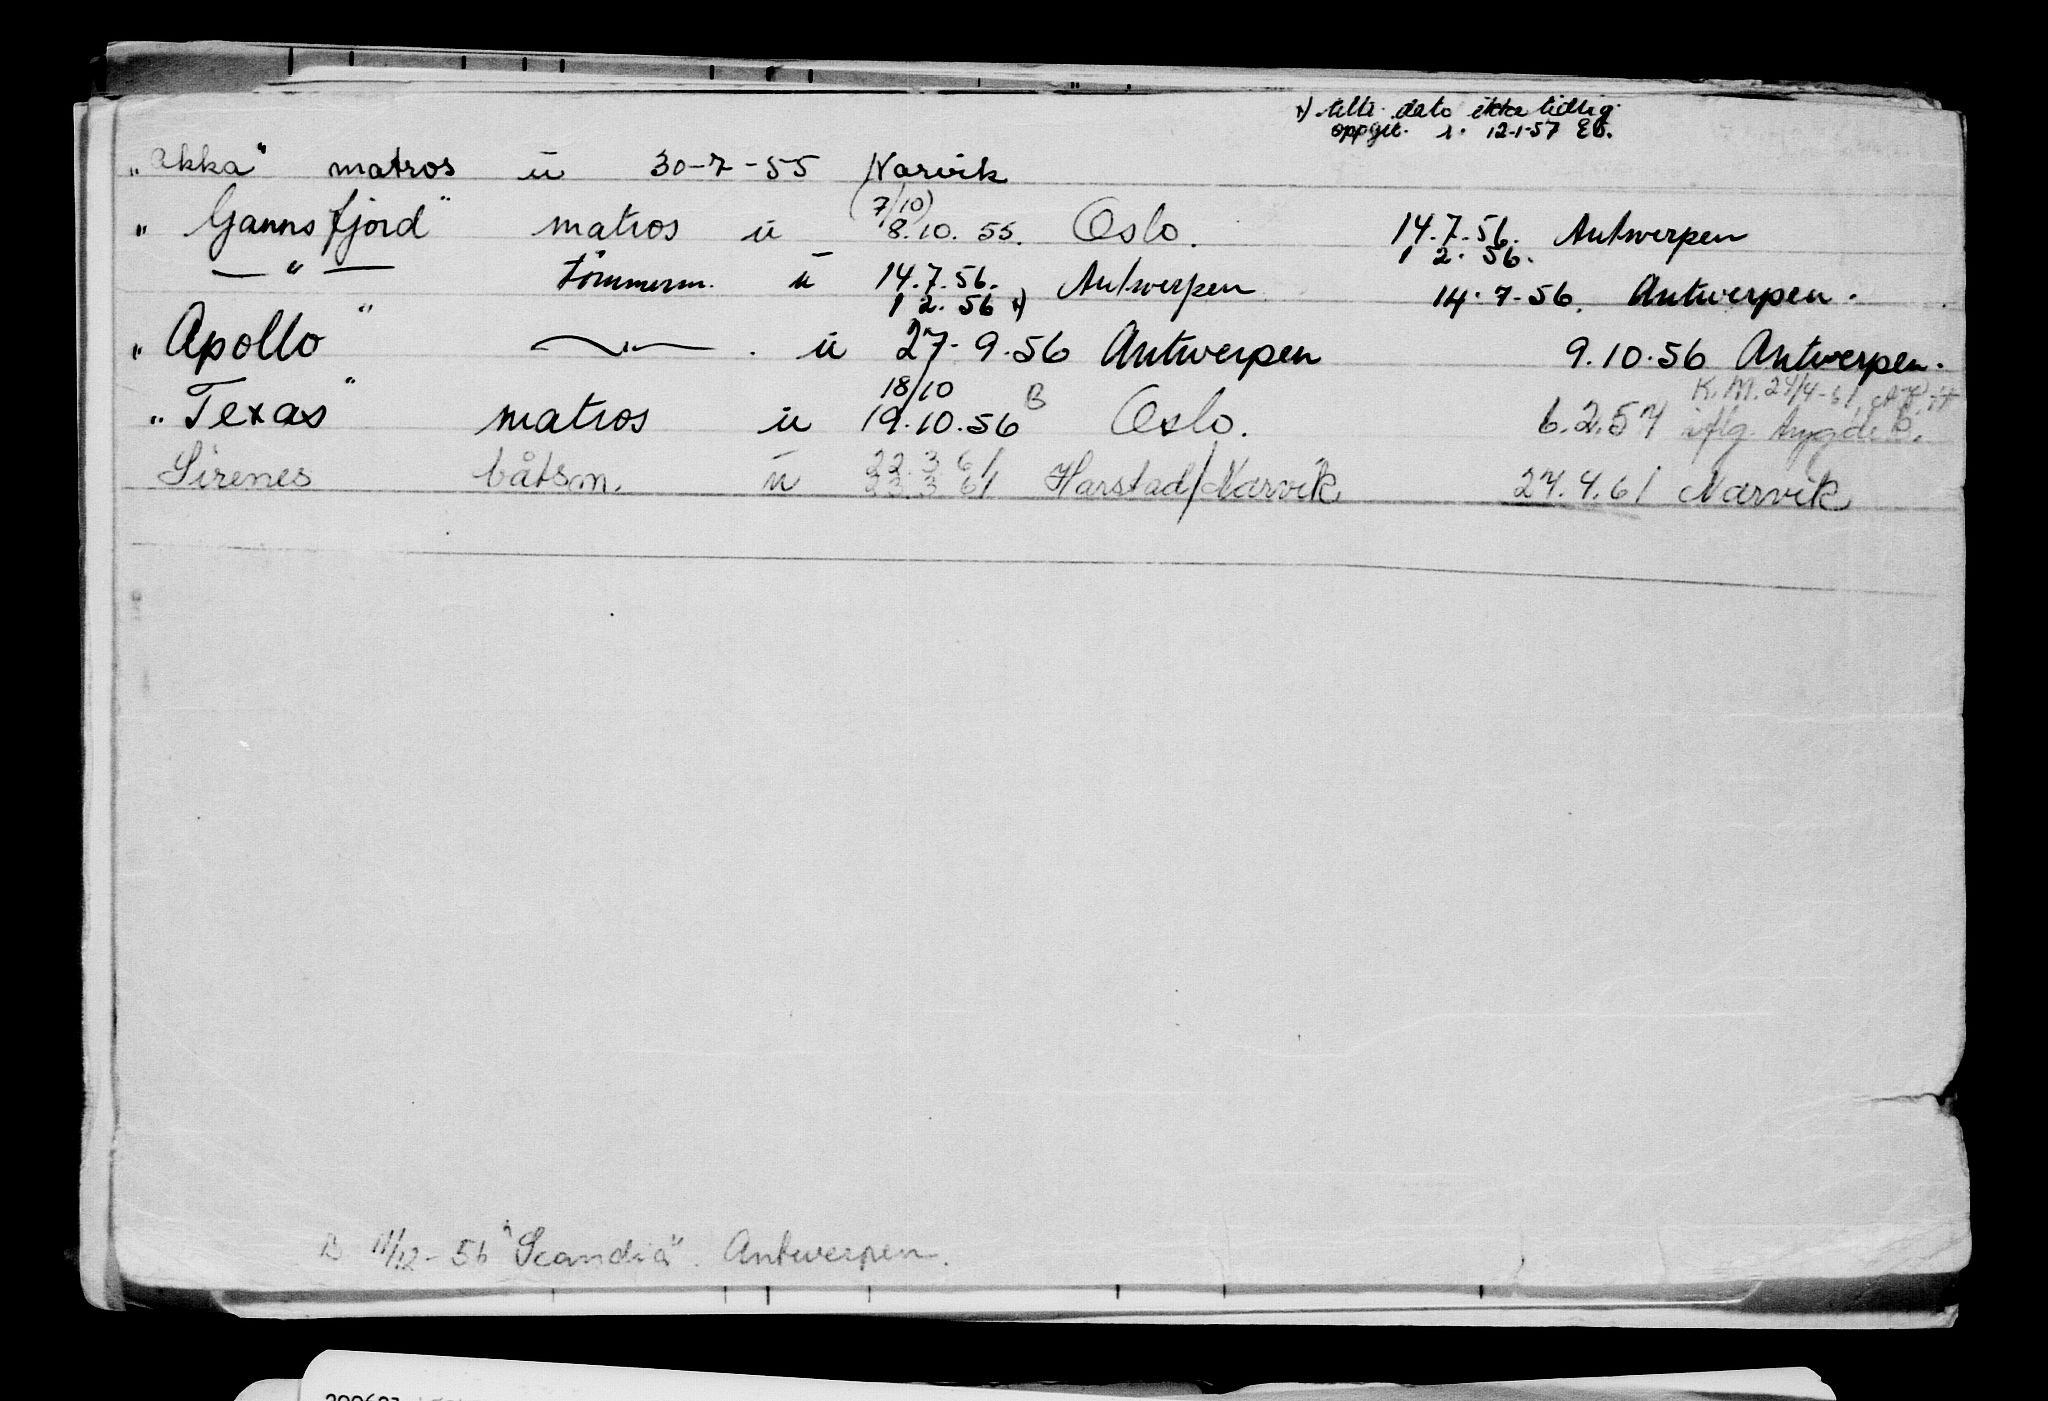 x) dette dato ikke tidlig.
oppgit. 12-1-57 EB.
"Akka" matros u 30-7-55 Narvik
(7/10)
"Gannsfjord" matros u 8.10.55. Oslo. 14.7.56. Antwerpen
1 2. 56.
— " — tömmerm. u 14.7.56. Antwerpen 14.7-56. Antwerpen.
1 2. 56 x)
"Apollo" —"— . u 27-9.56 Antwerpen 9.10.56 Antwerpen.
18/10 K.M. 24/4-61
"Texas" matros u 19.10.56 B Oslo. 6.2.57 iflg.
22.3 61
Sirenes båtsm. u 23.3 61 Harstad/Narvik 27.4.61 Narvik
B 11/12-56 "Scandia". Antwerpen.